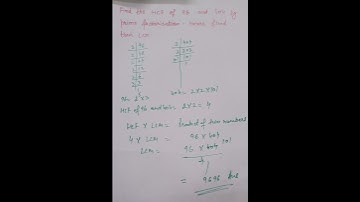 Find the HCF of 96 and 404 by
prime factorisation. Hence, find
their LCM
2 | 96
2 | 404
2 | 202
404 = 2×2×101
HCF of 96 and 404 = 2×2 = 4
HCF × LCM = Product of two numbers
4 × LCM = 96 × 404
LCM = 96 × 404
4
101
= 9696 Ans